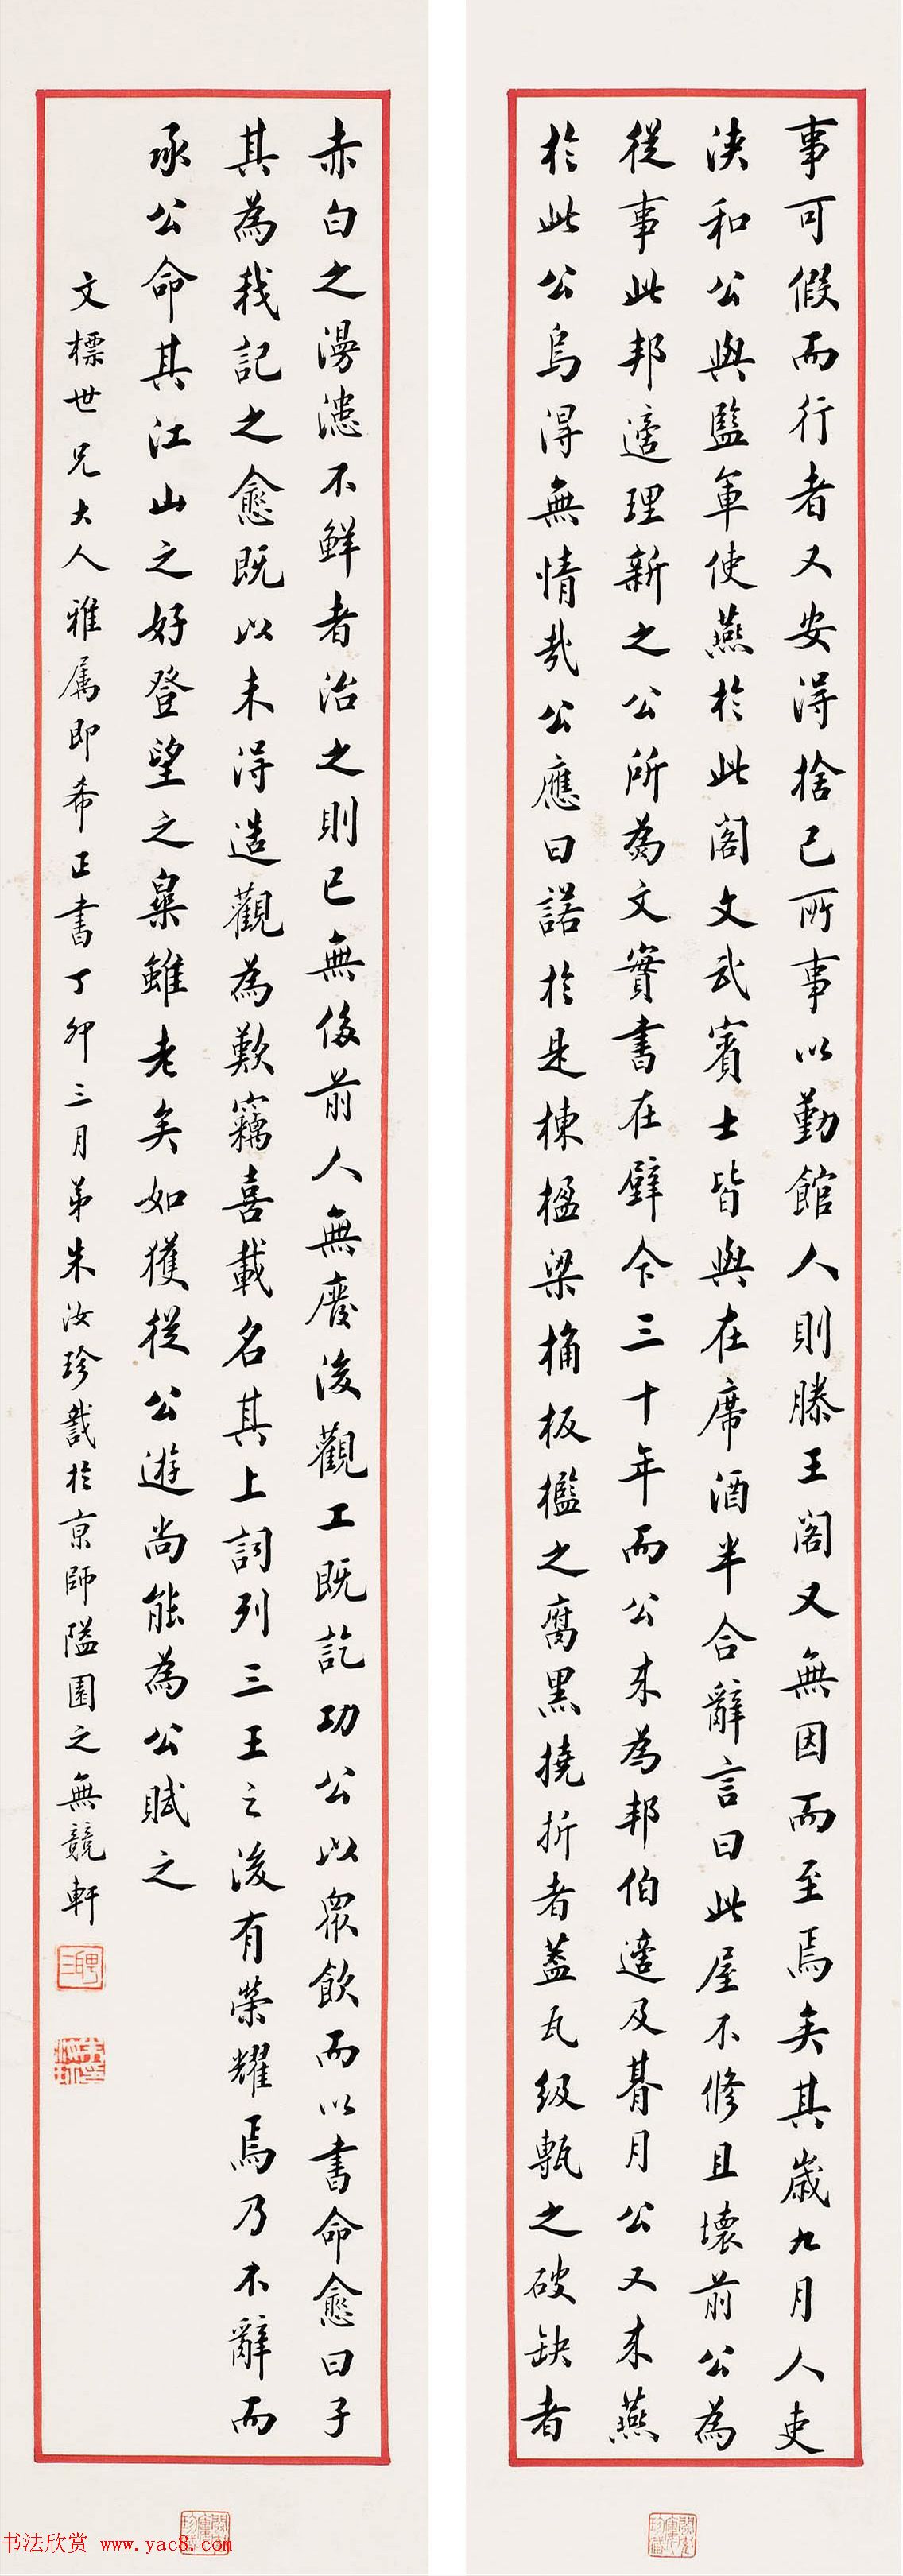 事可假而行者又安得捨己所事以勤館人則滕王閣又無因而至焉矣其歲九月人吏
浹和公與監軍使燕於此閣文武賓士皆與在席酒半合辭言曰此屋不修且壞前公為
從事此邦適理新之公所為文實書在壁今三十年而公來為邦伯適及朞月公又來燕
於此公烏得無情哉公應曰諾於是棟楹梁桷板檻之腐黑撓折者蓋瓦級甎之破缺者
赤白之漫漶不鮮者治之則已無侈前人無廢後觀工既訖功公以眾飲而以書命愈曰子
其為我記之愈既以未得造觀為歎竊喜載名其上詞列三王之後有榮耀焉乃不辭而
承公命其江山之好登望之樂雖老矣如獲從公遊尚能為公賦之
文標世兄大人雅属即希正書丁卯三月弟朱汝珍識於京師隘園之無競軒
聘三
朱汝珍
书法欣赏 www.yac8.com